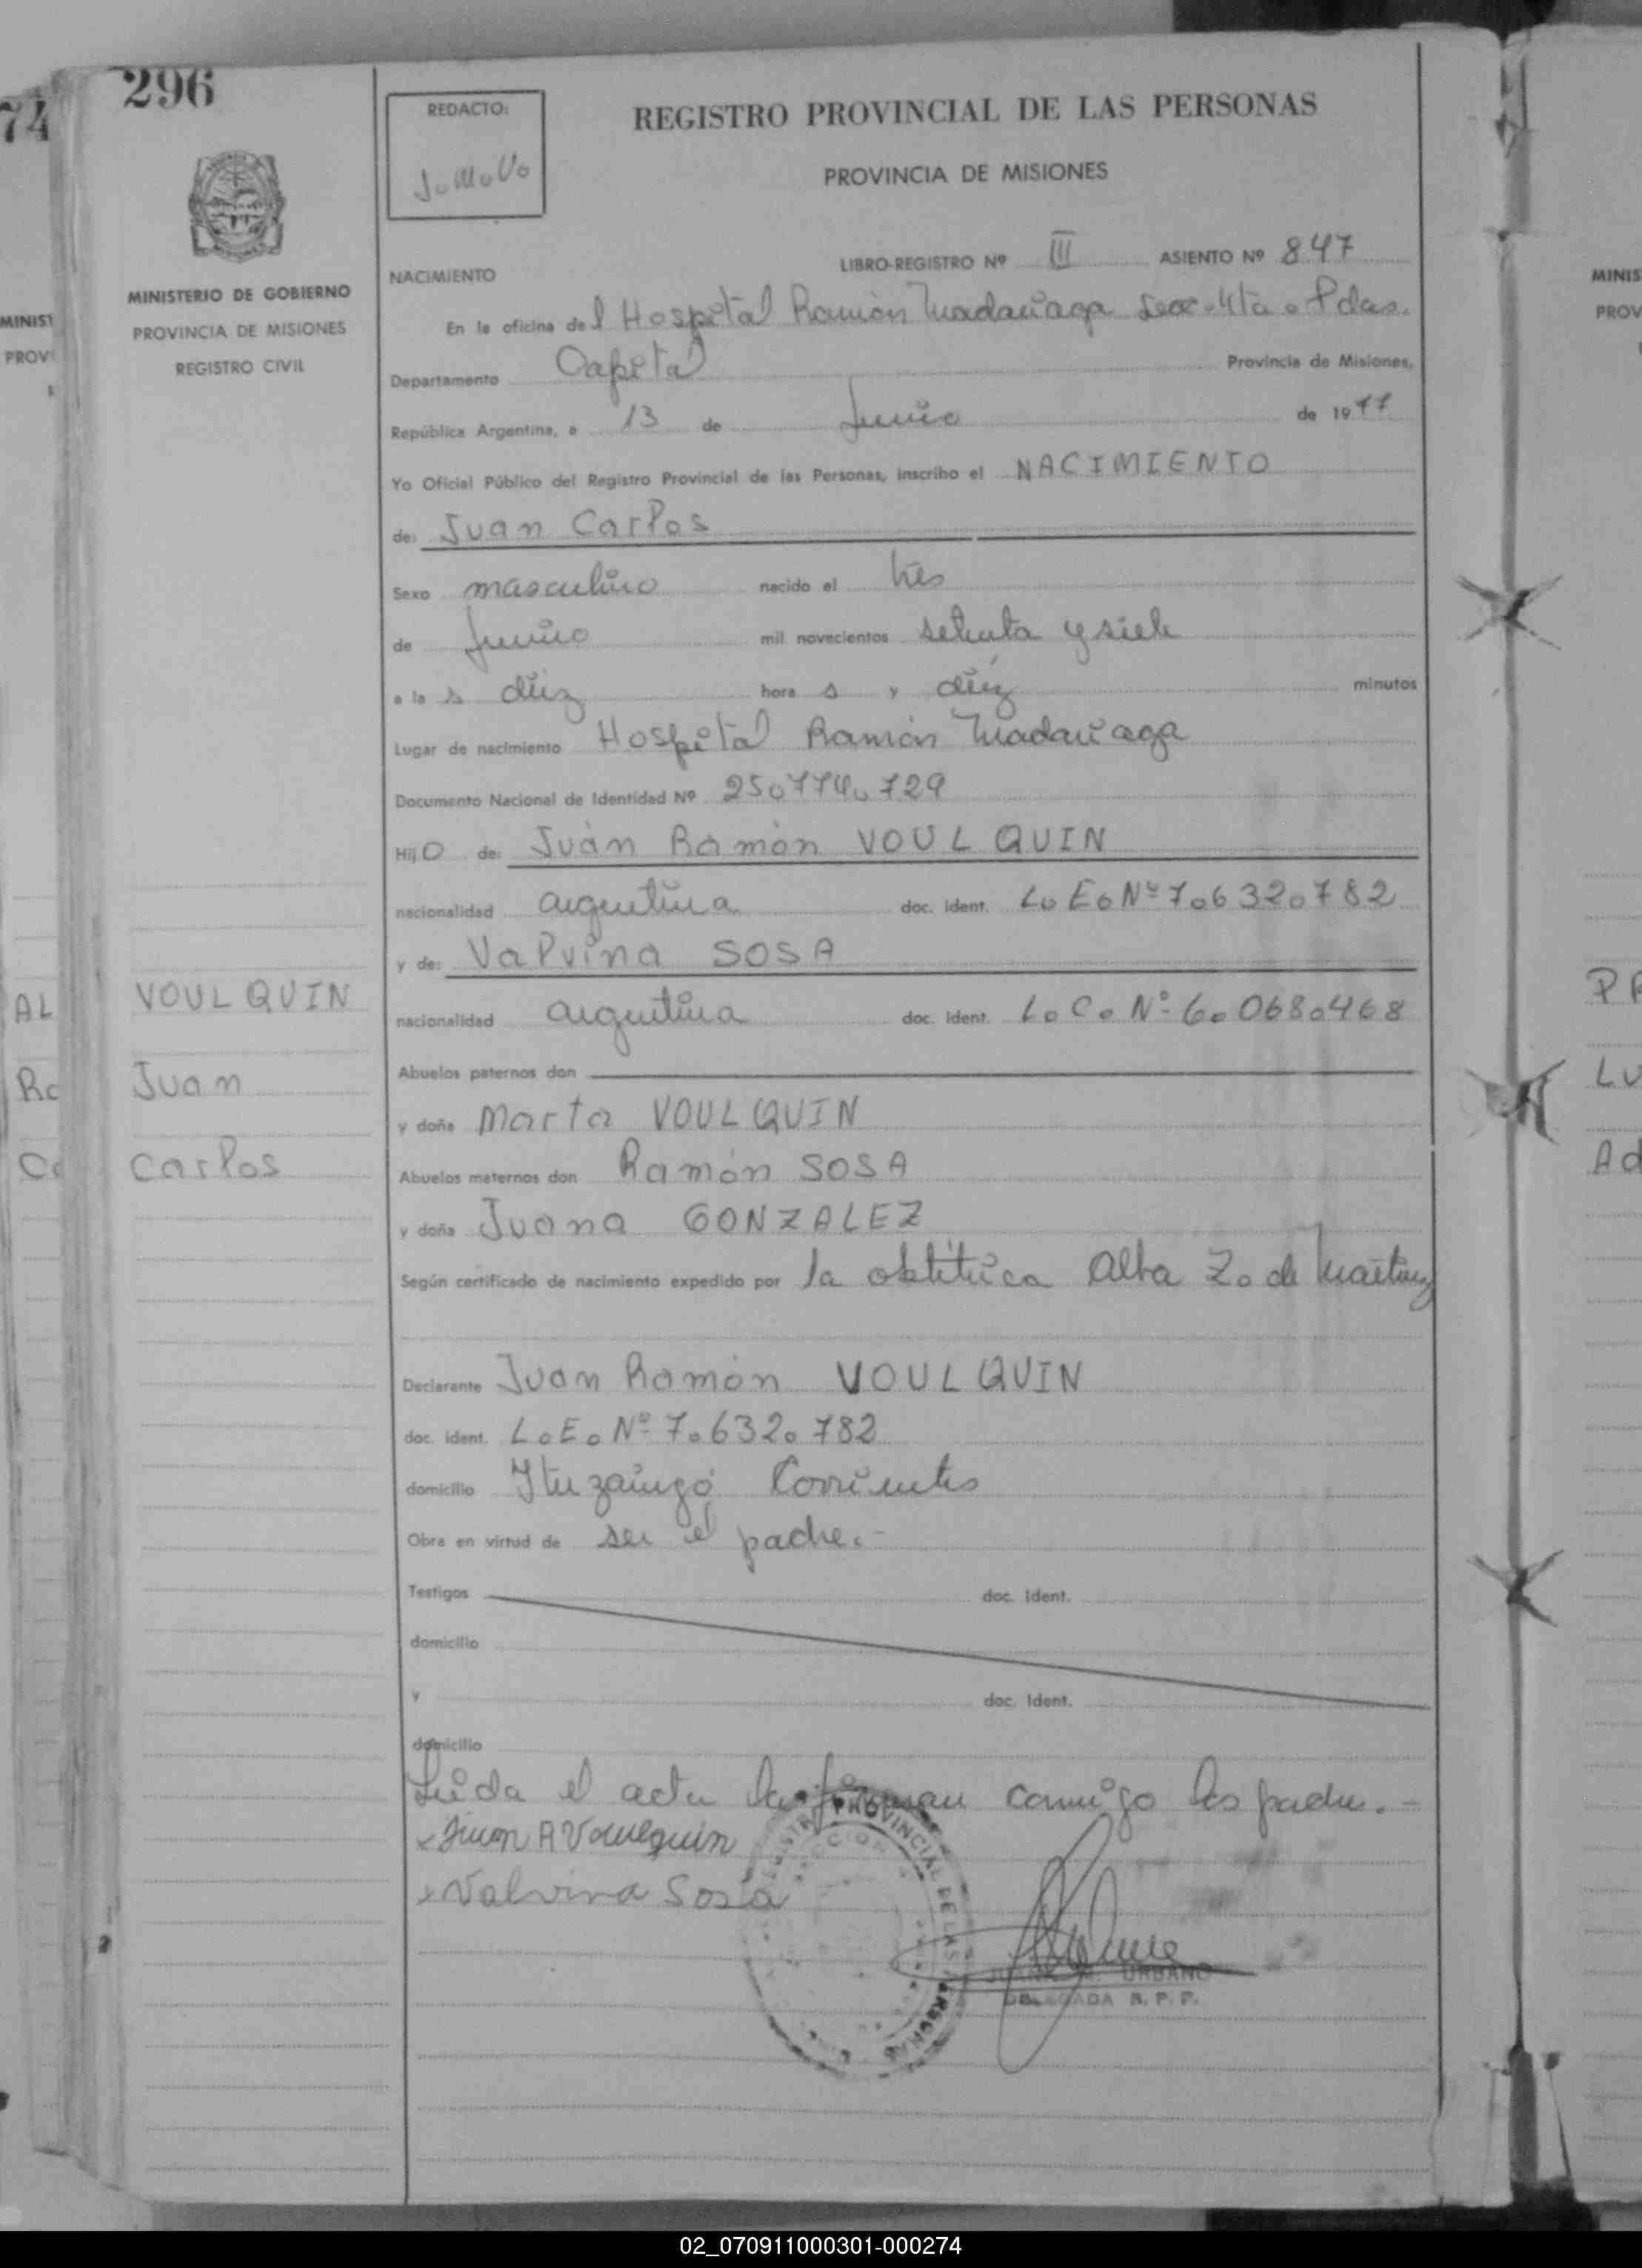 74
296
REDACTO:
J.M.V.
REGISTRO PROVINCIAL DE LAS PERSONAS
PROVINCIA DE MISIONES
MINISTERIO DE GOBIERNO
PROVINCIA DE MISIONES
REGISTRO CIVIL
NACIMIENTO
LIBRO-REGISTRO Nº III ASIENTO Nº 847
En la oficina del Hospital Ramón Madariaga Secc. 4ta. Pdas.
Departamento Capital Provincia de Misiones,
República Argentina, a 13 de Junio de 1977
Yo Oficial Público del Registro Provincial de las Personas, inscribo el NACIMIENTO
de: Juan Carlos
Sexo masculino nacido el tres
de Junio mil novecientos setenta y siete
a la s diez hora s y diez minutos
Lugar de nacimiento Hospital Ramón Madariaga
Documento Nacional de Identidad Nº 25.774.729
Hijo de: Juan Ramón VOULQUIN
nacionalidad argentina doc. ident. L.E.Nº 7.632.782
y de: Valvina SOSA
nacionalidad argentina doc. ident. L.C.Nº 6.068.468
Abuelos paternos don
y doña Marta VOULQUIN
Abuelos maternos don Ramón SOSA
y doña Juana GONZALEZ
Según certificado de nacimiento expedido por la obstétrica Alba Z. de Martinez
Declarante Juan Ramón VOULQUIN
doc. ident. L.E.Nº 7.632.782
domicilio Ituzaingó Corrientes
Obra en virtud de ser el padre.-
Testigos doc. Ident.
domicilio
y doc. Ident.
domicilio
Leída el acta la firman conmigo los padres.-
x Juan R Voulquin
x Valvina Sosa
VOULQUIN
Juan
Carlos
URBANO
DELEGADA R. P. P.
MINIST
PROVI
AL
Ra
Ca
MINIS
PROV
PR
LU
Ad
02_070911000301-000274